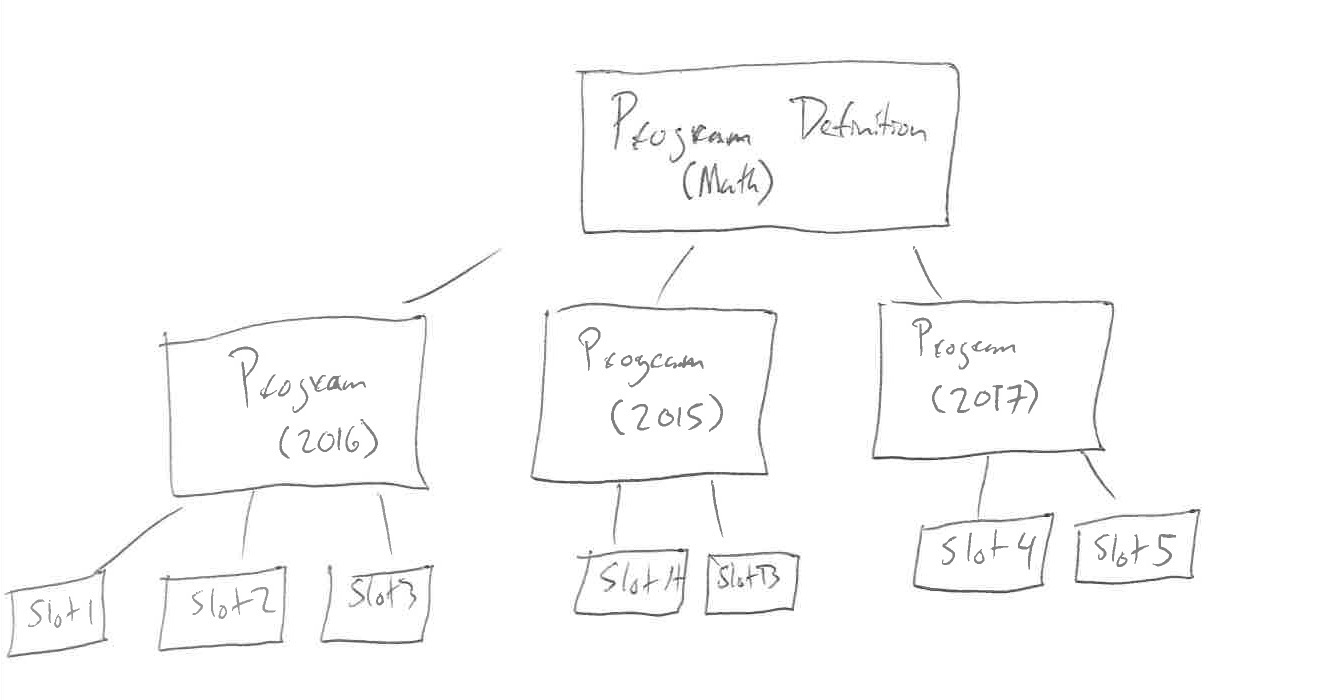 Program Definition
(Math)
Program
(2016)
Program
(2015)
Program
(2017)
Slot 1
Slot 2
Slot 3
Slot A
Slot B
Slot 4
Slot 5